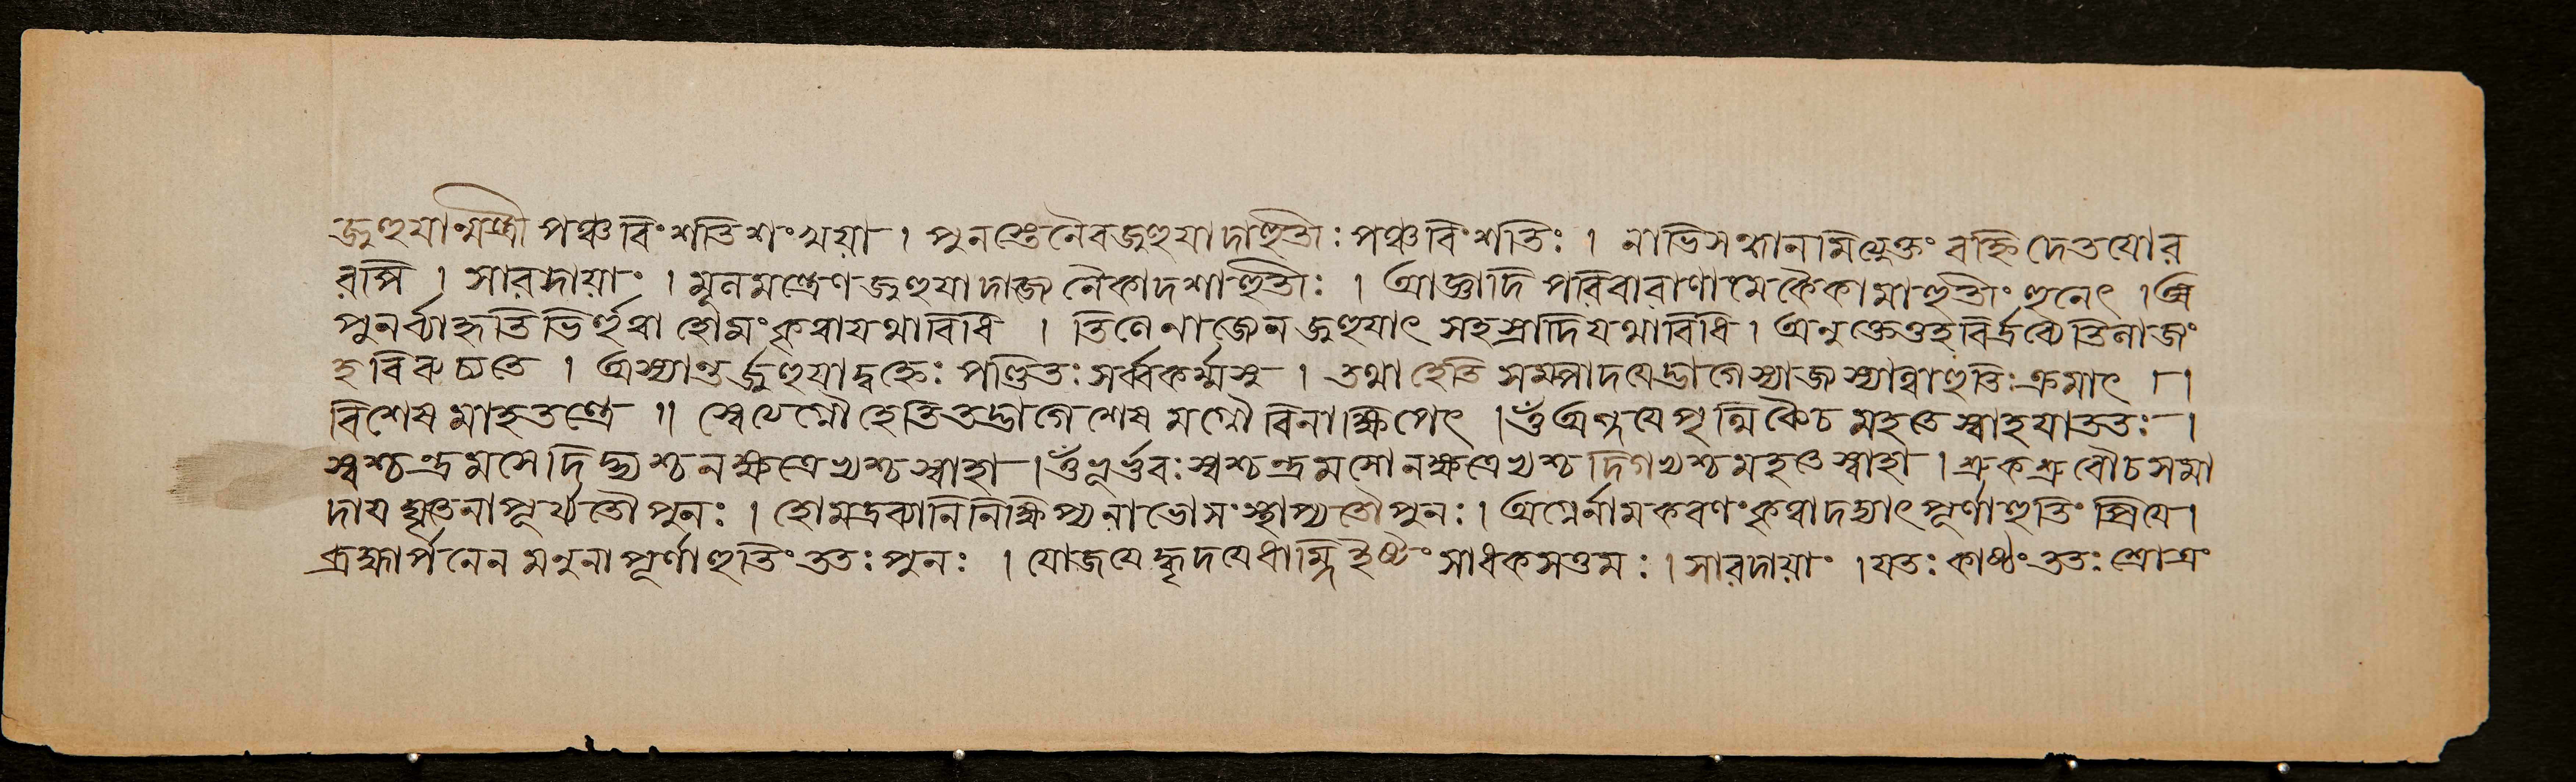 জুহুযান্মন্ত্রী পঞ্চবিংশতিশংখ্যয়া । পুনস্তেনৈবজুহুযাদাহুতীঃ পঞ্চবিংশতিঃ । নাভিসন্ধানমিত্যুক্তং বহ্নিদেতযোর
রপি । সারদায়াং । মুনমন্ত্রেণজুহুযাদাজ্যনৈকাদশাহুতীঃ । আজ্ঞাদি পরিবারাণামেকৈকামাহুতীং হুনেৎ । অ
পুনর্ব্যাহৃতিভির্হুত্বা হোমংকৃত্বাযথাবিধি । তিণেনাজ্যেন জুহুযাৎ সহস্রাদিযথাবিধি । অনুক্তেতুহবির্দ্রব্যেতিনাজ্যং
হবিরুচ্যতে । অস্যান্তর্জুহুযাদ্বহ্নেঃ পণ্ডিতঃ সর্ব্বকর্ম্মসু । তথাহেতি সমপাদযেদ্ভাগেস্যাজ্যস্যান্বাহুতিঃক্রমাৎ ।।
বিশেষমাহতন্ত্রে ॥ স্রুবেণেগ্নৌহেতিতদ্ভাগে শেষমগ্নৌবিনাক্ষিপেৎ । ওঁঅগ্নযেপৃথিব্যৈচমহতেস্বাহযাততঃ ।
স্বশ্চন্দ্রমসেদিগ্ভ্যশ্চনক্ষত্রেভ্যশ্চস্বাহা । ওঁভূর্ভুবঃস্বশ্চন্দ্রমসোনক্ষত্রেভ্যশ্চদিগভ্যশ্চমহতেস্বাহা । শ্রুকশ্রুবৌচসমা
দাযঘৃতেনাপূর্য্যতৌপুনঃ । হোমদ্রব্যানিনিক্ষিপ্যনাভৌসংস্থাপ্যতৌপুনঃ । অগ্নের্নামকরণংকৃত্বাদদ্যাৎপূর্ণাহুতিং প্রিযে ।
ব্রহ্মার্পনেন মনুনাপূর্ণাহুতিং ততঃপুনঃ । যোজযেদ্ধৃদযেধাম্নিইত্থং সাধকসত্তমঃ । সারদায়াং । যতঃ কাষ্ঠংততঃ শ্রোত্রং